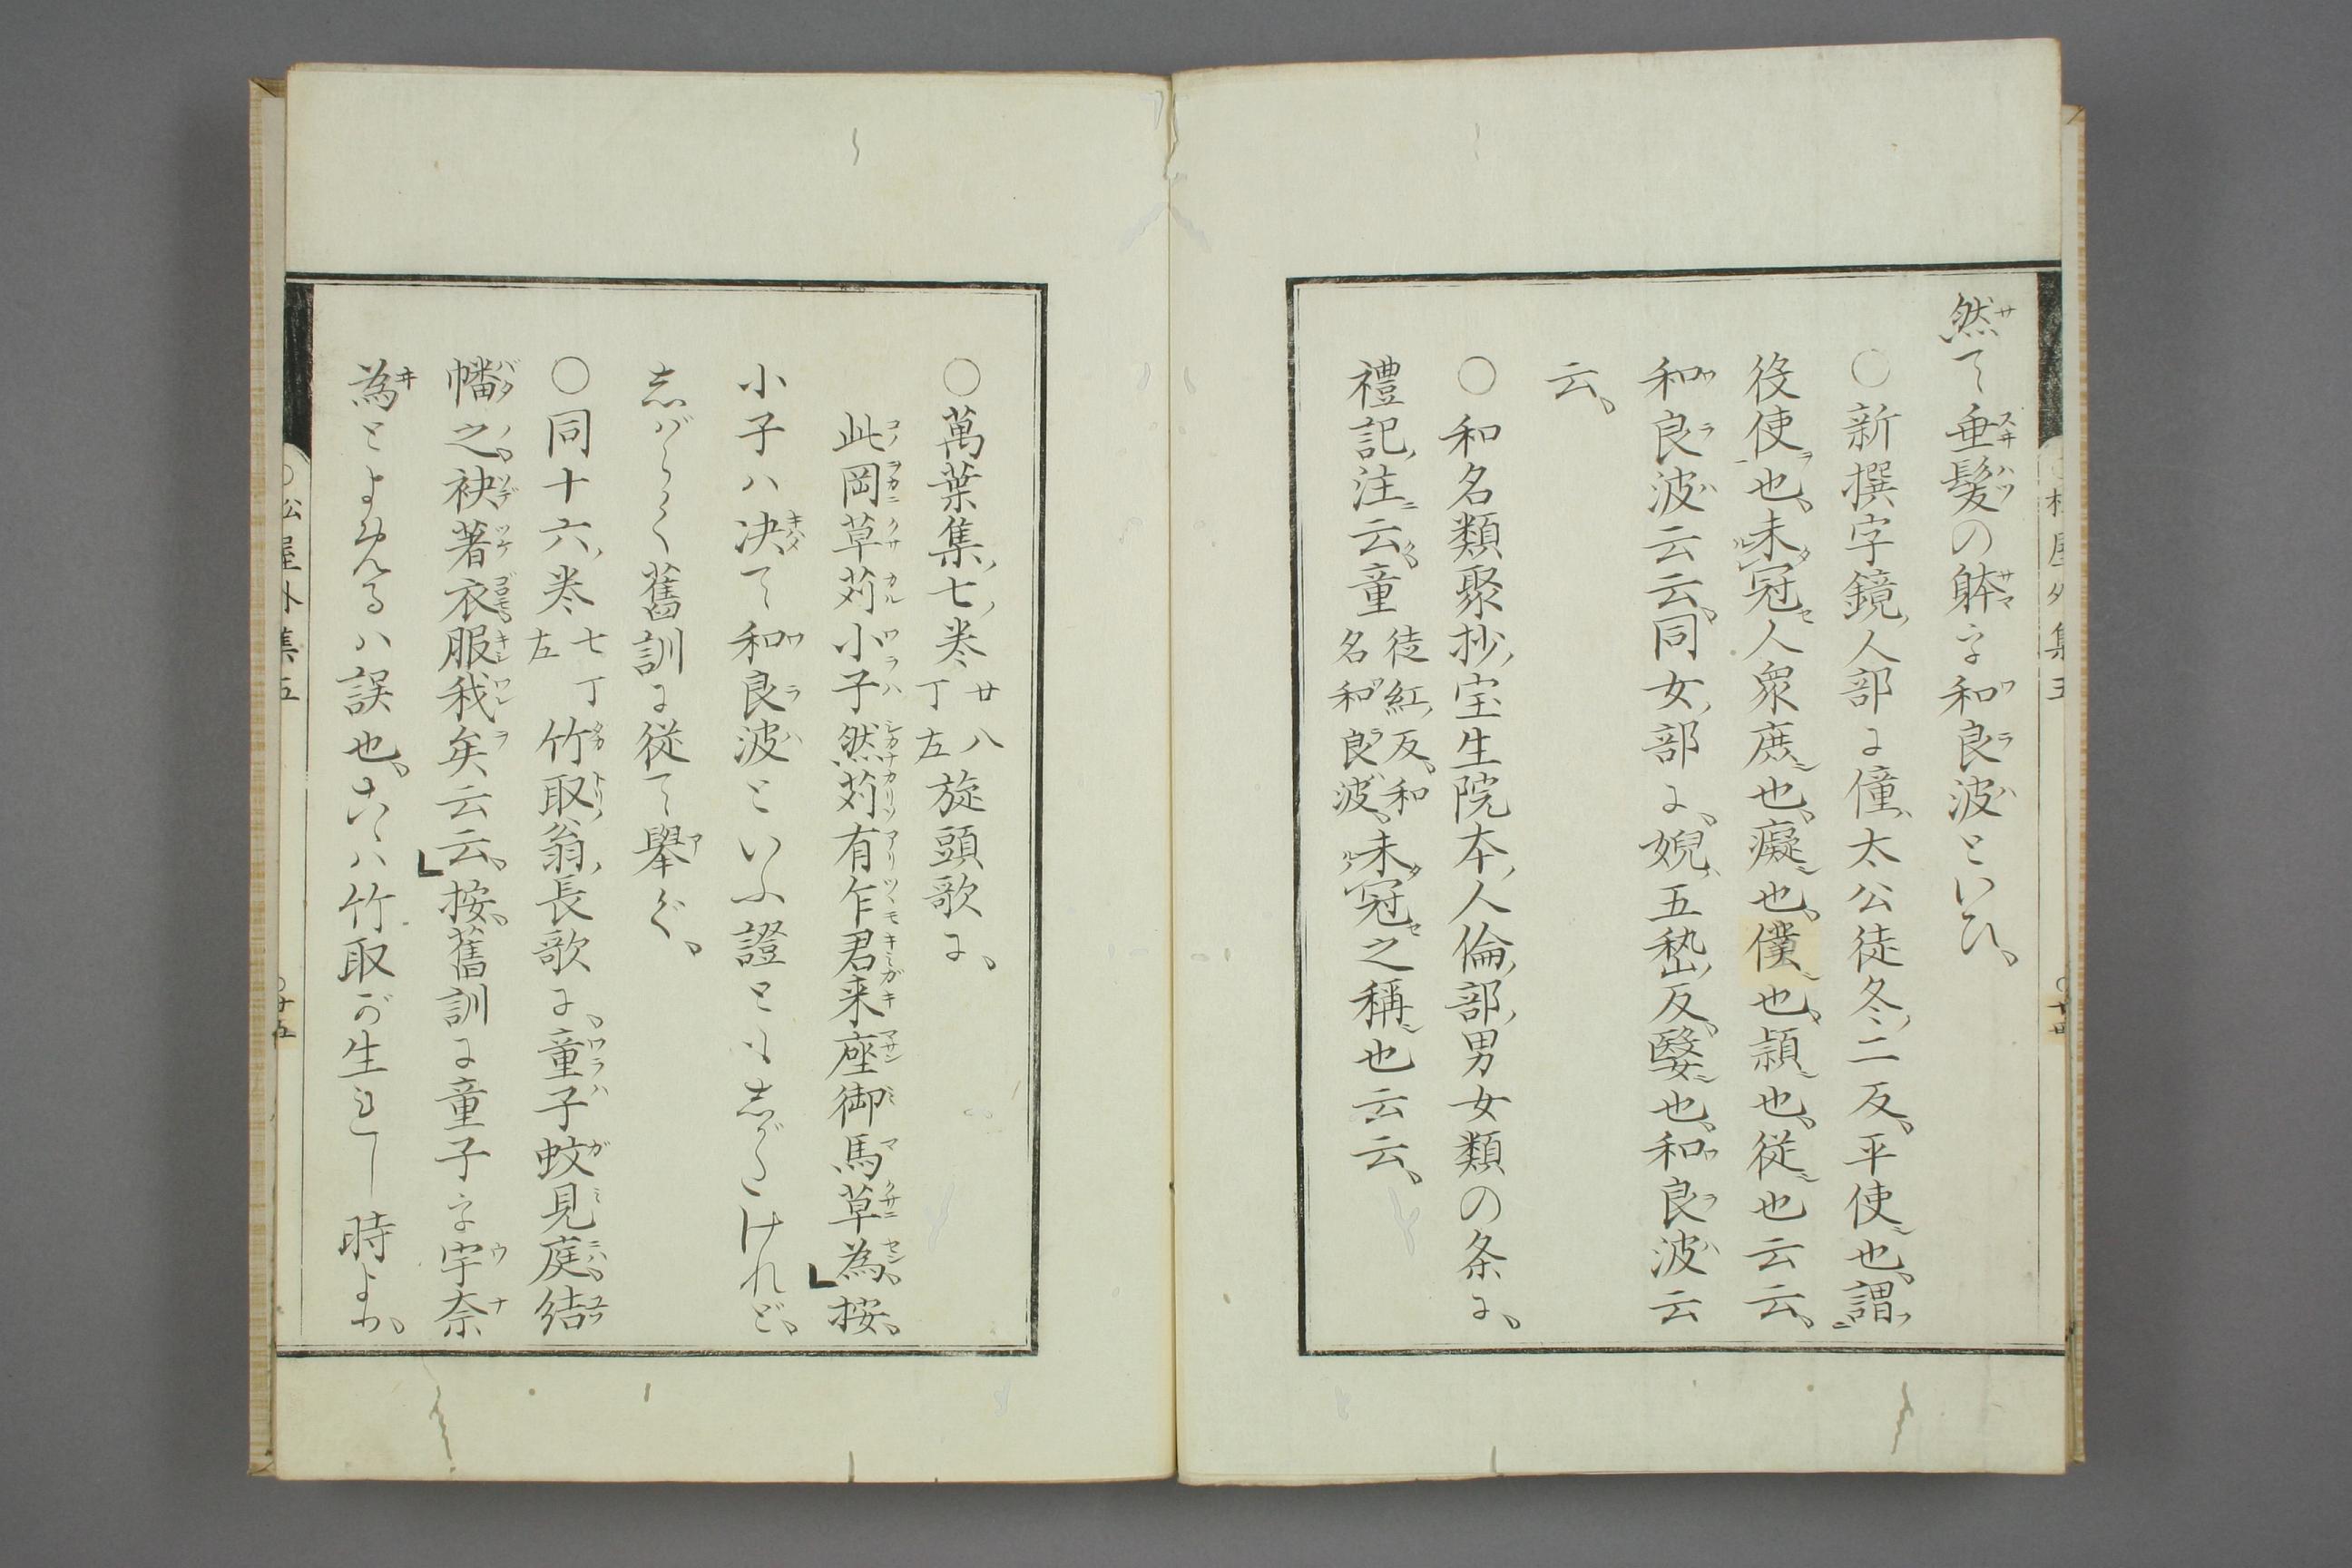 然て垂髪の躰を和良波といひ、
〇新撰字鏡人部に僮、太公徒冬二反、平使也、謂
役使也、未冠人衆庶也、癡也、僕也、頴也、従也云云、
和良波云云、同女部に、婗、五嵆反、嫛也、和良波云
云、
〇和名類聚抄宝生院本人倫部男女類の条に、
禮記注云童徒紅反、和名和良波、未冠之稱也云云、
〇萬葉集七巻廿八丁左旋頭歌に、
此岡草苅小子然苅有乍君来座御馬草為、」按、
小子ハ决て和良波といふ證ともしがたけれど、
志ばらく舊訓に従て擧ぐ、
〇同十六巻七丁左竹取翁長歌に、童子蚊見庭、結
幡之袂著衣服我矣云云、」按、舊訓に童子を宇奈
為とよめるハ誤也、こハ竹取が生れし時より、
松屋外集五